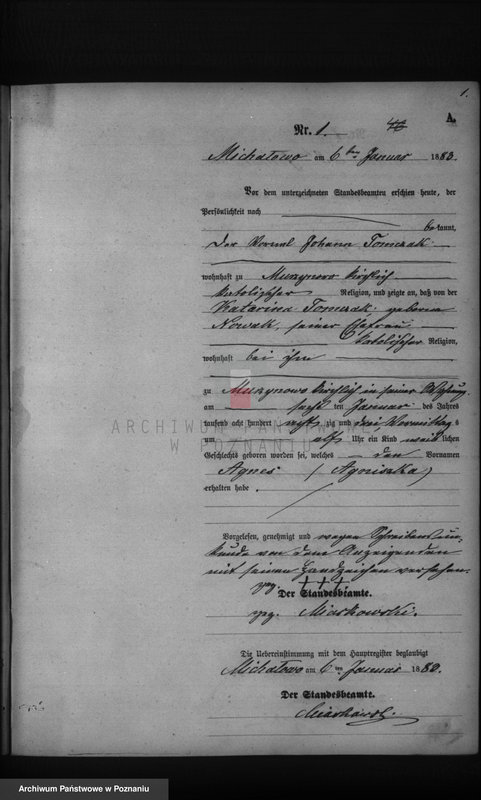 1.
A.
Nr. 1. 46
Michałowo am 6ten Januar 1883.
Vor dem unterzeichneten Standesbeamten erschien heute, der
Persönlichkeit nach
bekannt,
Der Johann Tomczak
wohnhaft zu Murzynowo kirchlich
katolischer Religion, und zeigte an, daß von der
Katarina Tomczak geborne
Nowak, seiner Ehefrau
katolischer Religion,
wohnhaft bei ihm
zu Murzynowo kirchlich in seiner
am sechs ten Januar des Jahres
tausend acht hundert acht zig und drei Vormittags
um elf Uhr ein Kind weiblichen
Geschlechts geboren worden sei, welches den Vornamen
Agnes (Agniszka)
erhalten habe.
ARCHIWUM PAŃSTWOWE
W POZNANIU
Vorgelesen, genehmigt und wegen Schreibensun-
kunde von dem Anzeigenden
mit seinen Handzeichen versehen.
gez. +++
Der Standesbeamte.
gez. Miaskowski.
Die Uebereinstimmung mit dem Hauptregister beglaubigt
Michałowo am 6ten Januar 1883.
Der Standesbeamte.
Miaskowski.
Archiwum Państwowe w Poznaniu